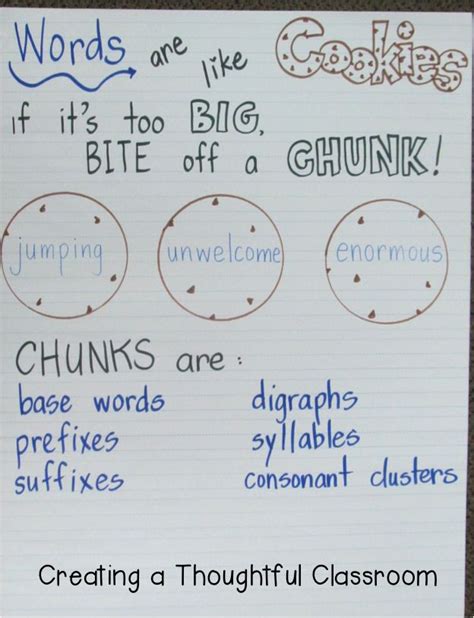 Words are like Cookies
if it's too BIG,
BITE off a CHUNK!
jumping unwelcome enormous
CHUNKS are :
base words digraphs
prefixes syllables
suffixes consonant clusters
Creating a Thoughtful Classroom